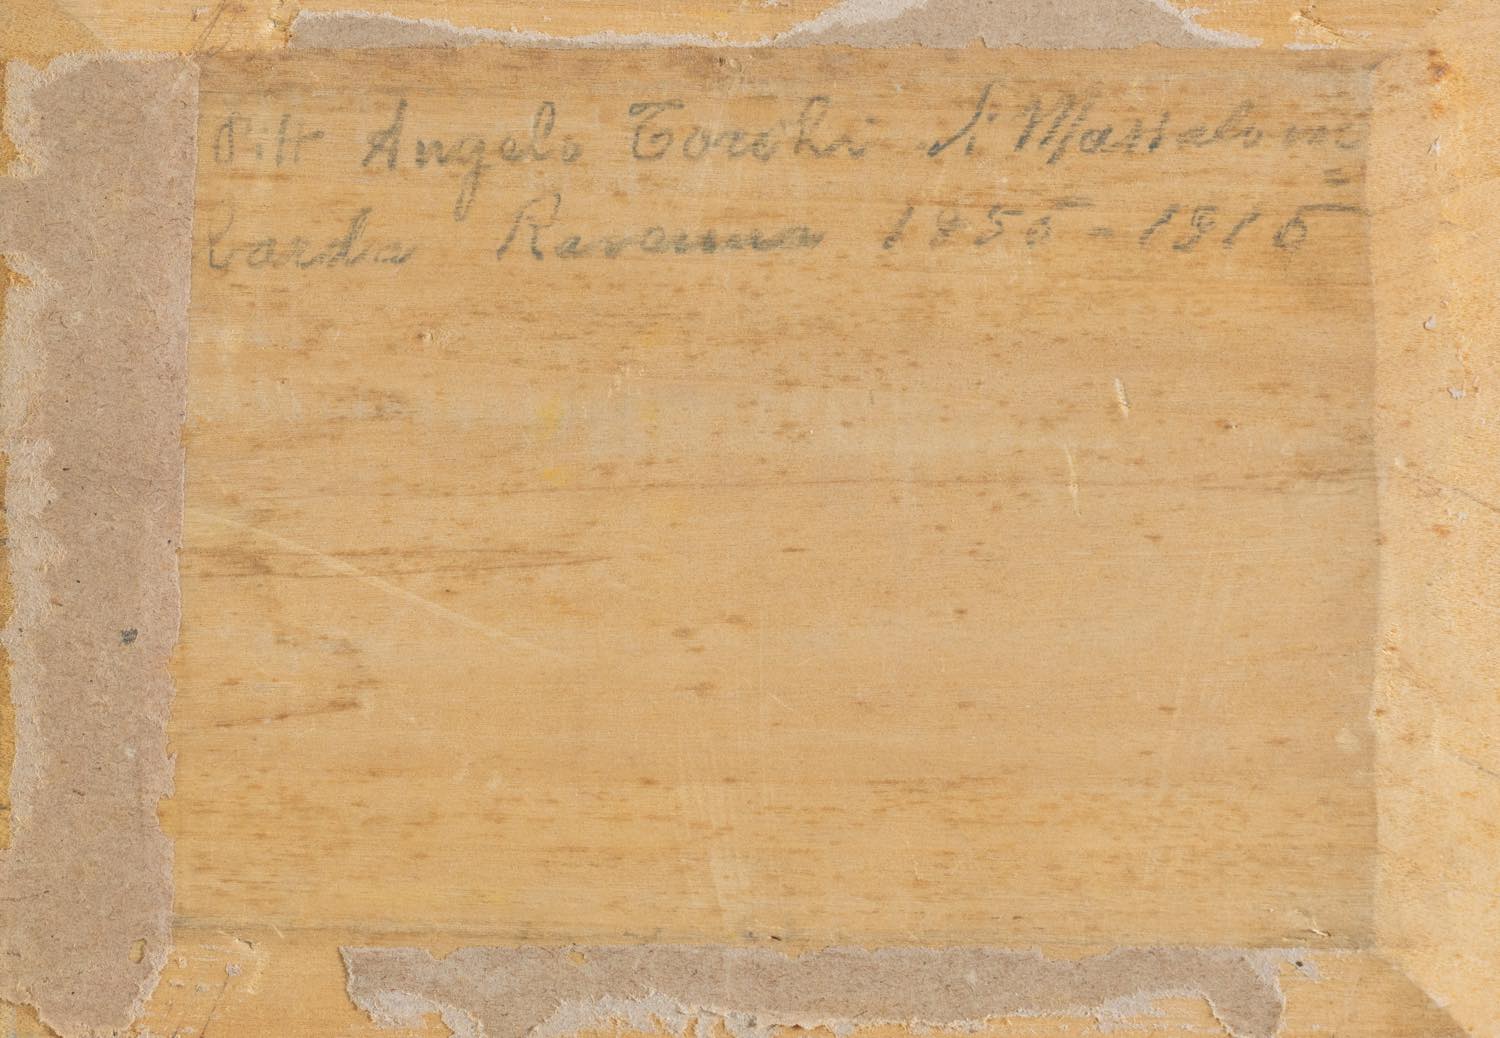 Pitt Angelo Torchi di Massalom=
barda Ravenna 1856-1915